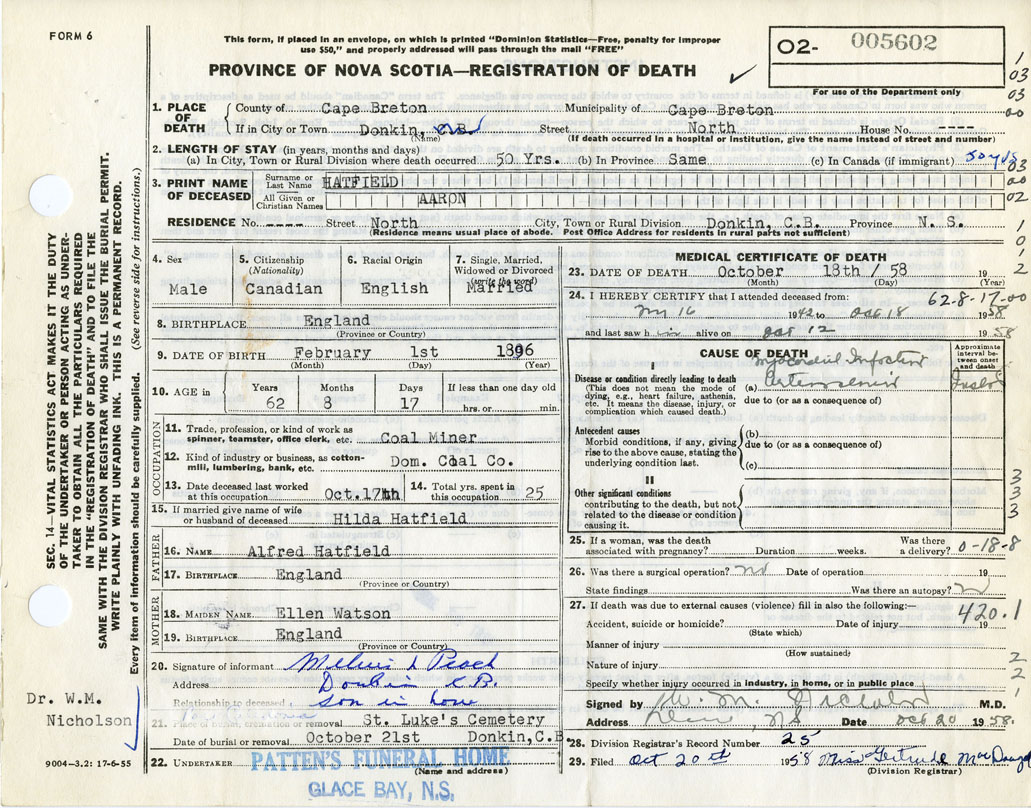 FORM 6
This form, if placed in an envelope, on which is printed "Dominion Statistics—Free, penalty for improper
use $50," and properly addressed will pass through the mail "FREE"
PROVINCE OF NOVA SCOTIA—REGISTRATION OF DEATH
O2- 005602
For use of the Department only
1. PLACE OF DEATH
County of Cape Breton Municipality of Cape Breton
If in City or Town Donkin, C B Street North House No. ----
(Name) (If death occurred in a hospital or institution, give the name instead of street and number)
2. LENGTH OF STAY (in years, months and days)
(a) In City, Town or Rural Division where death occurred 50 Yrs. (b) In Province Same (c) In Canada (if immigrant) 50 yrs
3. PRINT NAME OF DECEASED
Surname or Last Name HATFIELD
All Given or Christian Names AARON
RESIDENCE No. ---- Street North City, Town or Rural Division Donkin, C.B. Province N. S.
(Residence means usual place of abode. Post Office Address for residents in rural parts not sufficient)
4. Sex Male
5. Citizenship (Nationality) Canadian
6. Racial Origin English
7. Single, Married, Widowed or Divorced (write the word) Married
8. BIRTHPLACE England
(Province or Country)
9. DATE OF BIRTH February 1st 1896
(Month) (Day) (Year)
10. AGE in Years Months Days If less than one day old
62 8 17 hrs. or min.
OCCUPATION
11. Trade, profession, or kind of work as spinner, teamster, office clerk, etc. Coal Miner
12. Kind of industry or business, as cotton-mill, lumbering, bank, etc. Dom. Coal Co.
13. Date deceased last worked at this occupation Oct. 17th
14. Total yrs. spent in this occupation 25
15. If married give name of wife or husband of deceased Hilda Hatfield
FATHER
16. NAME Alfred Hatfield
17. BIRTHPLACE England
(Province or Country)
MOTHER
18. MAIDEN NAME Ellen Watson
19. BIRTHPLACE England
(Province or Country)
20. Signature of informant Peach
Address Donkin C.B.
Relationship to deceased son in law
21. Place of burial, cremation or removal St. Luke's Cemetery
Date of burial or removal October 21st Donkin, C.B
22. UNDERTAKER PATTEN'S FUNERAL HOME
(Name and address)
GLACE BAY, N.S.
MEDICAL CERTIFICATE OF DEATH
23. DATE OF DEATH October 18th / 58 19
(Month) (Day) (Year)
24. I HEREBY CERTIFY that I attended deceased from: 62-8-17-00
16 1942 to Oct 18 1958
and last saw h im alive on Oct 12 1958
CAUSE OF DEATH
Approximate interval between onset and death
I
Disease or condition directly leading to death
(This does not mean the mode of dying, e.g., heart failure, asthenia, etc. It means the disease, injury, or complication which caused death.)
(a) Myocardial Infarction
due to (or as a consequence of)
Antecedent causes
Morbid conditions, if any, giving rise to the above cause, stating the underlying condition last.
(b)
due to (or as a consequence of)
(c)
II
Other significant conditions
contributing to the death, but not related to the disease or condition causing it.
25. If a woman, was the death associated with pregnancy? Duration weeks. Was there a delivery? 0-18-8
26. Was there a surgical operation? no Date of operation 19
State findings Was there an autopsy?
27. If death was due to external causes (violence) fill in also the following:— 420.1
Accident, suicide or homicide? Date of injury 19
(State which)
Manner of injury
(How sustained)
Nature of injury
Specify whether injury occurred in industry, in home, or in public place
Signed by W. M. Nicholson M.D.
Address NS Date Oct 20 1958.
28. Division Registrar's Record Number 25
29. Filed Oct 20th 1958 Miss Gertrude
(Division Registrar)
1
03
03
00
03
00
02
1
0
1
2
3
3
3
2
2
1
SEC. 14—VITAL STATISTICS ACT MAKES IT THE DUTY
OF THE UNDERTAKER OR PERSON ACTING AS UNDER-
TAKER TO OBTAIN ALL THE PARTICULARS REQUIRED
IN THE "REGISTRATION OF DEATH" AND TO FILE THE
SAME WITH THE DIVISION REGISTRAR WHO SHALL ISSUE THE BURIAL PERMIT.
WRITE PLAINLY WITH UNFADING INK. THIS IS A PERMANENT RECORD.
Every item of information should be carefully supplied. (See reverse side for instructions.)
Dr. W.M.
Nicholson
9004—3.2: 17-6-55